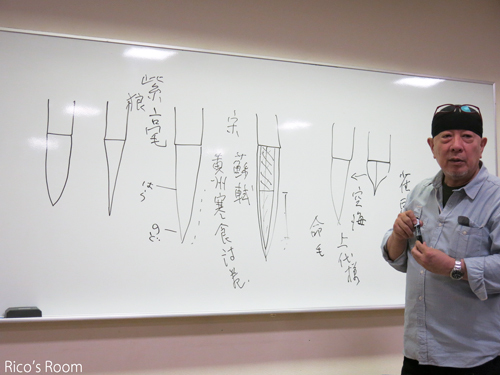 紫毫
狼
はら
のど
宋 蘇軾
黄州寒食詩巻
命毛
空海
上代様
雀
Rico's Room